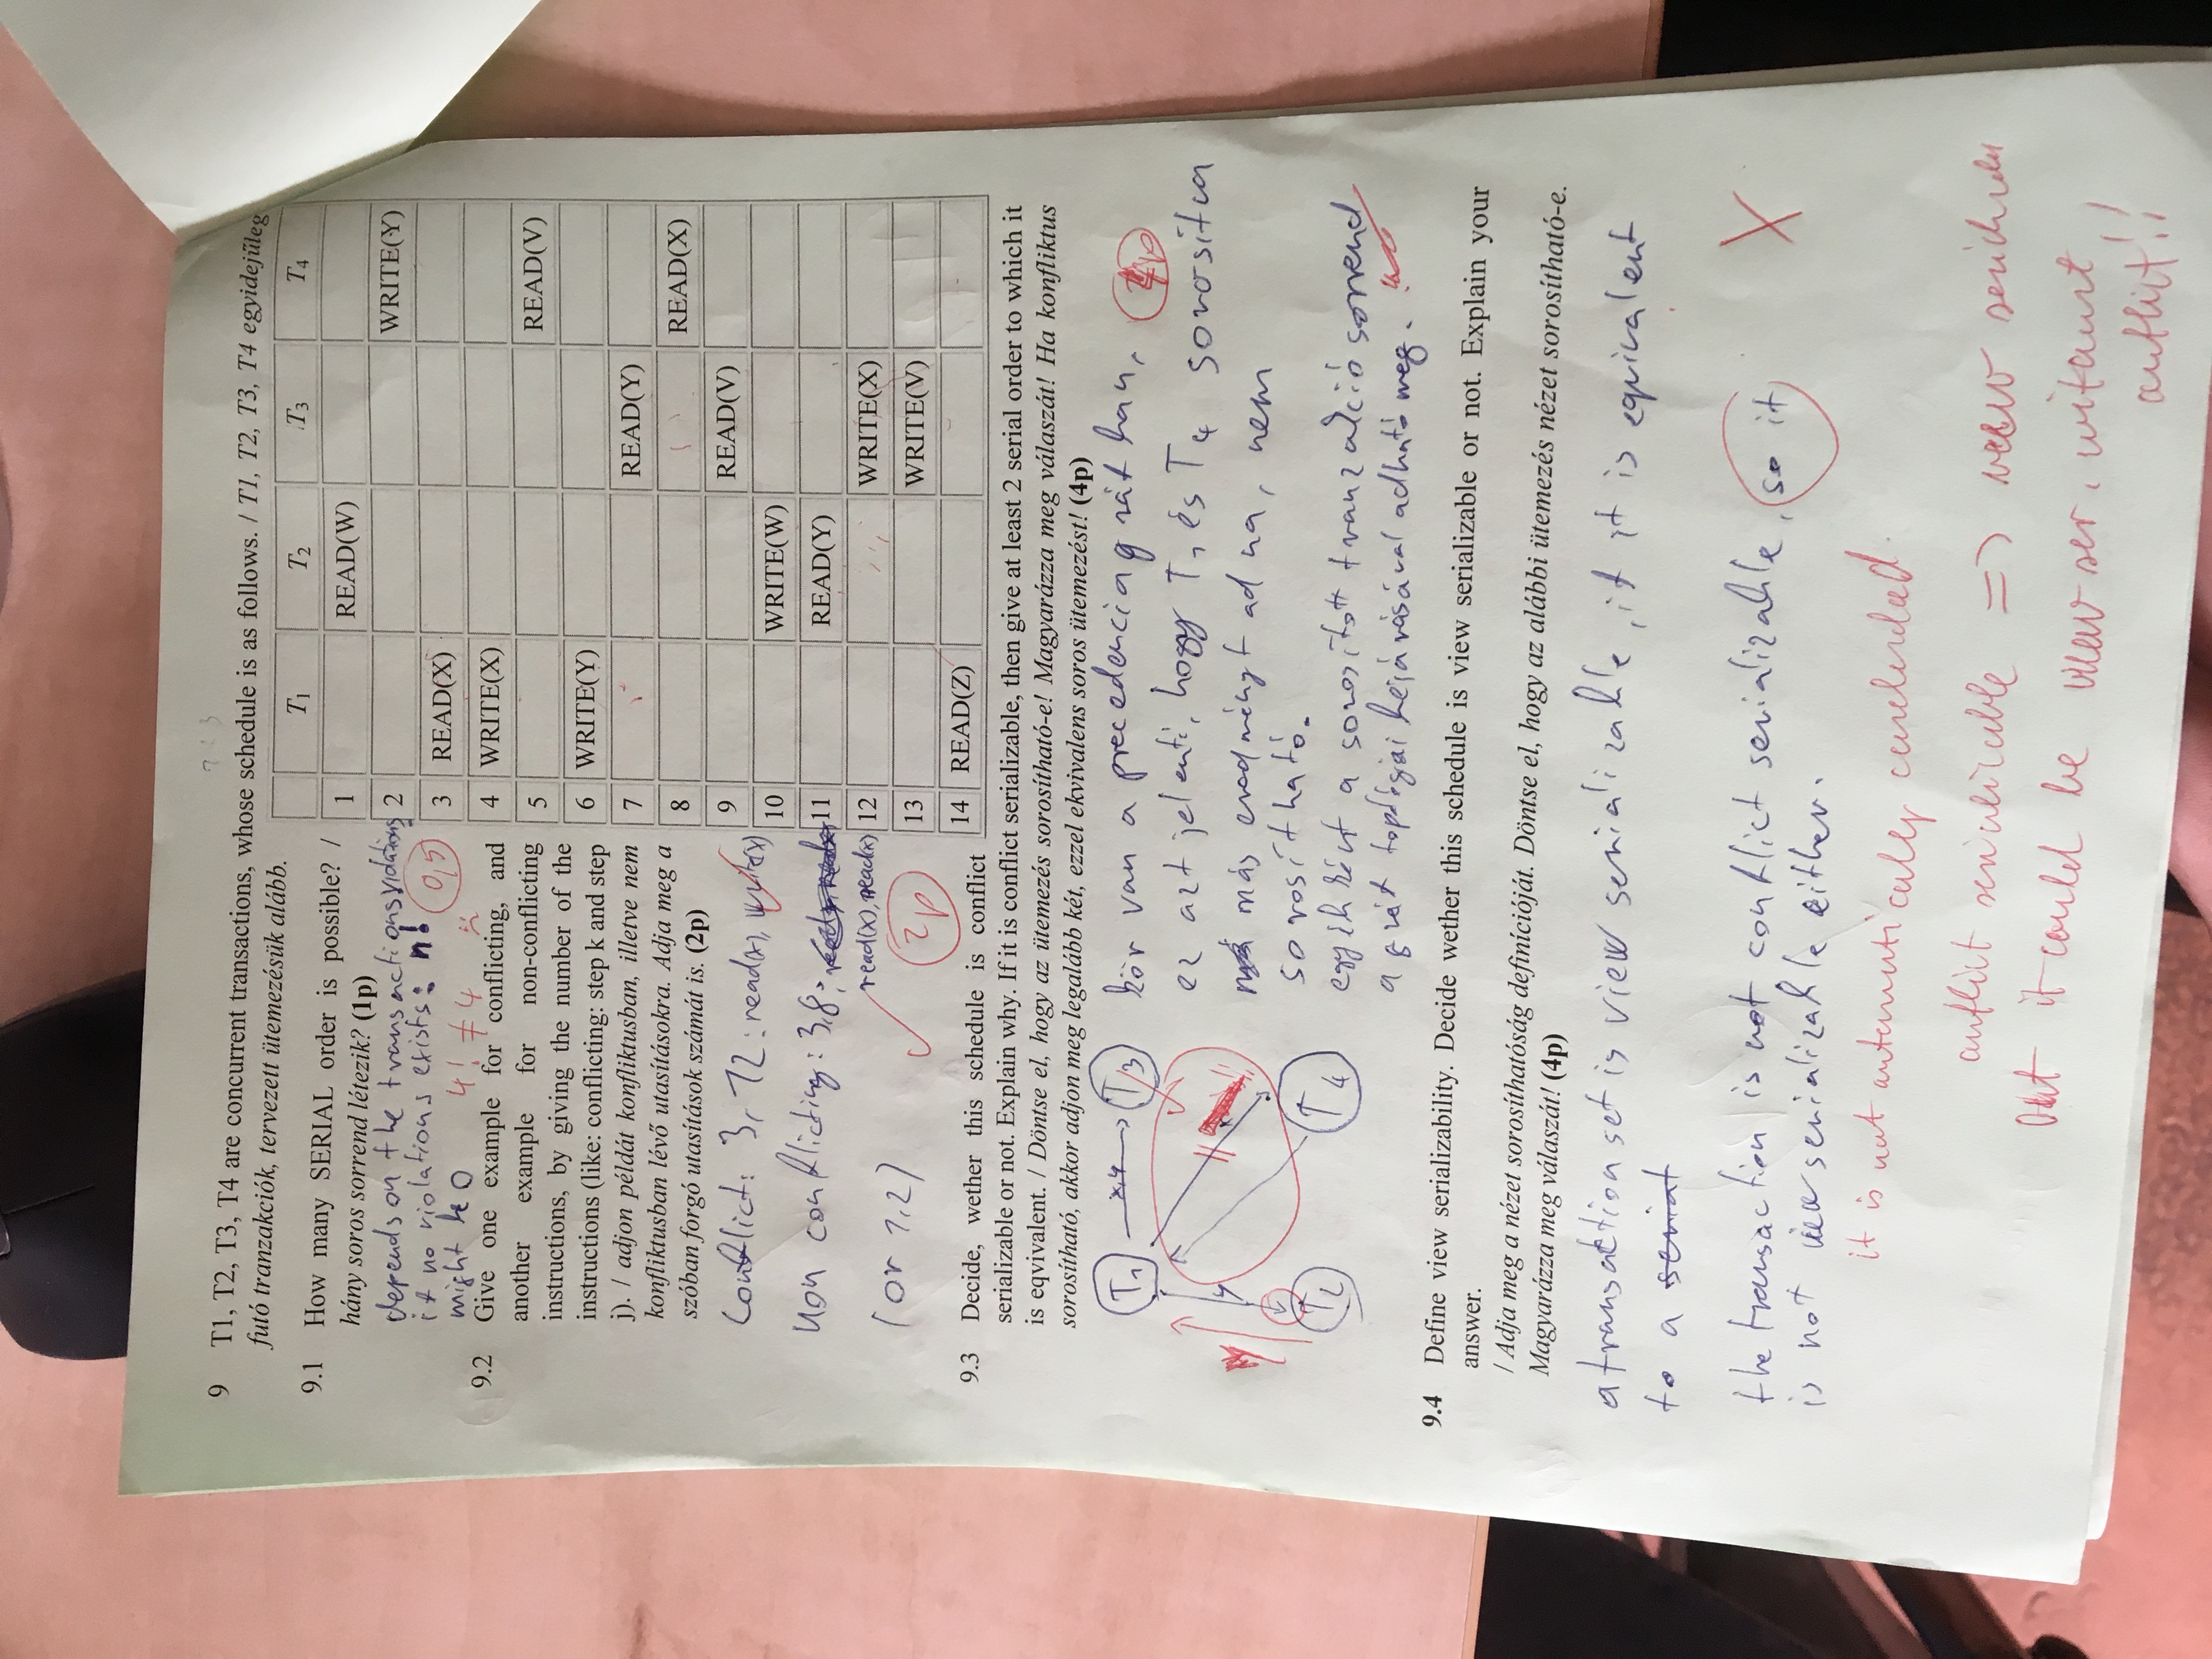 9 T1, T2, T3, T4 are concurrent transactions, whose schedule is as follows. / T1, T2, T3, T4 egyidejűleg
futó tranzakciók, tervezett ütemezésük alább.
9.1 How many SERIAL order is possible? /
hány soros sorrend létezik? (1p)
depends on the transactions violations
if no violations exists: n!
might be 0
4! ≠ 4
0,5
9.2 Give one example for conflicting, and
another example for non-conflicting
instructions, by giving the number of the
instructions (like: conflicting: step k and step
j). / adjon példát konfliktusban, illetve nem
konfliktusban lévő utasításokra. Adja meg a
szóban forgó utasítások számát is. (2p)
conflict: 3, 12: read(x), write(x)
non conflicting: 3,8:
read(x), read(x)
(or 1,2)
2p
T1 T2 T3 T4
1 READ(W)
2 WRITE(Y)
3 READ(X)
4 WRITE(X)
5 READ(V)
6 WRITE(Y)
7 READ(Y)
8 READ(X)
9 READ(V)
10 WRITE(W)
11 READ(Y)
12 WRITE(X)
13 WRITE(V)
14 READ(Z)
9.3 Decide, wether this schedule is conflict
serializable or not. Explain why. If it is conflict serializable, then give at least 2 serial order to which it
is eqvivalent. / Döntse el, hogy az ütemezés sorosítható-e! Magyarázza meg válaszát! Ha konfliktus
sorosítható, akkor adjon meg legalább két, ezzel ekvivalens soros ütemezést! (4p)
T1 T3
T2 T4
kör van a precedencia gráfban,
ez azt jelenti, hogy T1 és T4 sorosítva
más eredményt adna, nem
sorosítható.
egyébként a sorosított tranzakció sorrend
a gráf topológiai bejárásával adható meg.
9.4 Define view serializability. Decide wether this schedule is view serializable or not. Explain your
answer.
/ Adja meg a nézet sorosíthatóság definícióját. Döntse el, hogy az alábbi ütemezés nézet sorosítható-e.
Magyarázza meg válaszát! (4p)
a transaction set is view serializable, if it is equivalent
to a serial
the transaction is not conflict serializable, so it
is not view serializable either.
X
it is not automatically concluded.
conflict serializable => view serializable
but it could be view ser. without
conflict!!